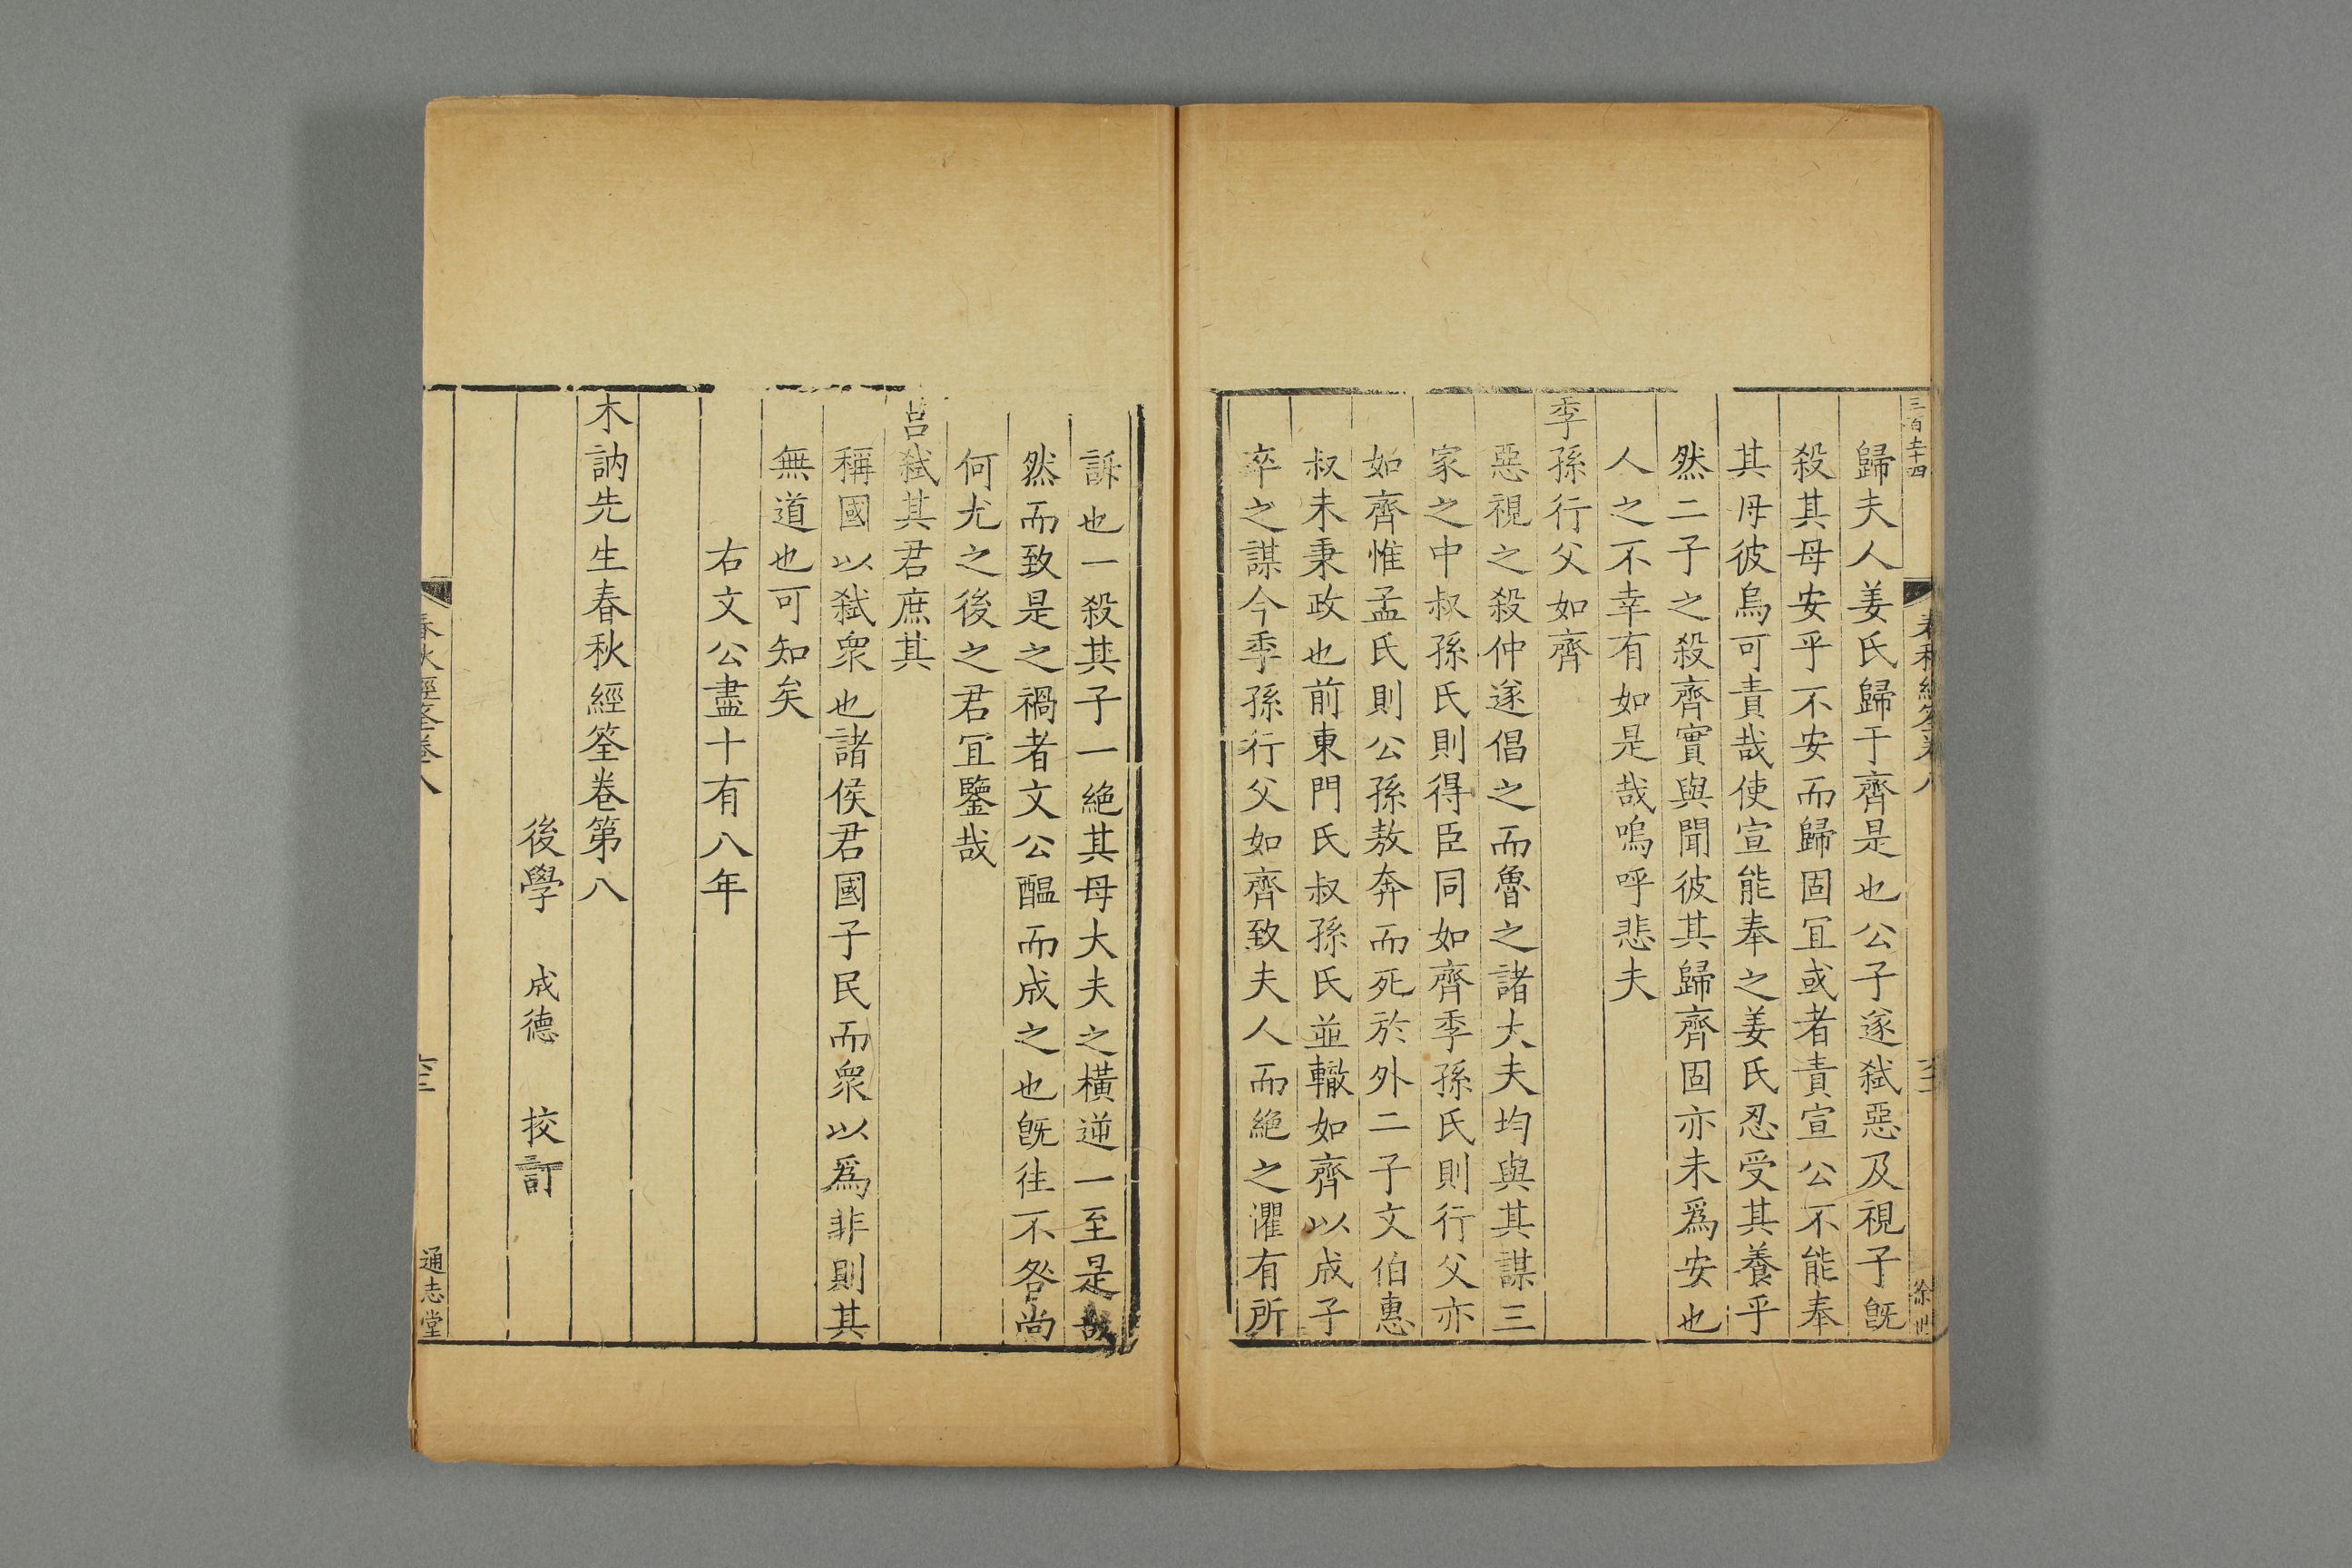 三百五十四
歸夫人姜氏歸于齊是也公子遂弒惡及視子旣
殺其母安乎不安而歸固冝或者責宣公不能奉
其母彼烏可責哉使宣能奉之姜氏忍受其養乎
然二子之殺齊實與聞彼其歸齊固亦未爲安也
人之不幸有如是哉嗚呼悲夫
季孫行父如齊
惡視之殺仲遂倡之而魯之諸大夫均與其謀三
家之中叔孫氏則得臣同如齊季孫氏則行父亦
如齊惟孟氏則公孫敖奔而死於外二子文伯惠
叔未秉政也前東門氏叔孫氏並轍如齊以成子
卒之謀今季孫行父如齊致夫人而絶之濯有所
訴也一殺其子一絶其母大夫之橫逆一至是哉
然而致是之禍者文公醞而成之也旣往不咎尚
何尤之後之君冝鑒哉
莒弒其君庶其
稱國以弒衆也諸侯君國子民而衆以爲非則其
無道也可知矣
右文公盡十有八年
木訥先生春秋經筌卷第八
後學 成德 校訂
春秋經筌卷八
通志堂